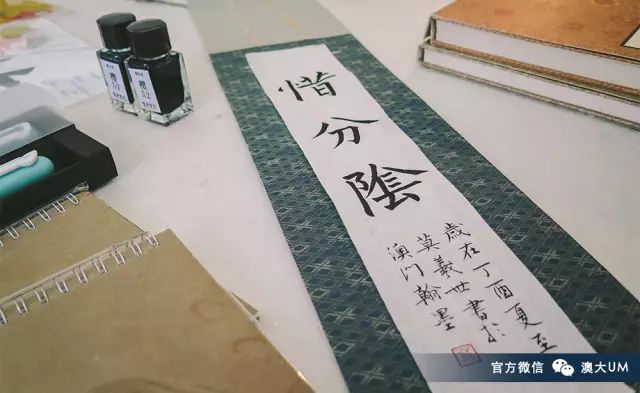 惜分陰
歲在丁酉夏至
莫義世書於
澳门翰墨
52
52
官方微信 澳大UM